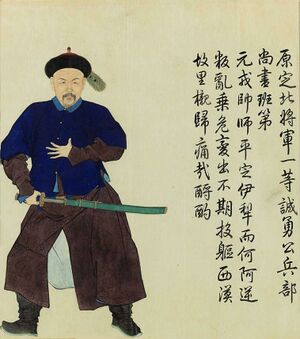 原定北將軍一等誠勇公兵部
尚書班第
元戎帥師平定伊犁而何阿逆
叛亂乗危変出不期投軀西漠
故里櫬歸痛哉酹酌